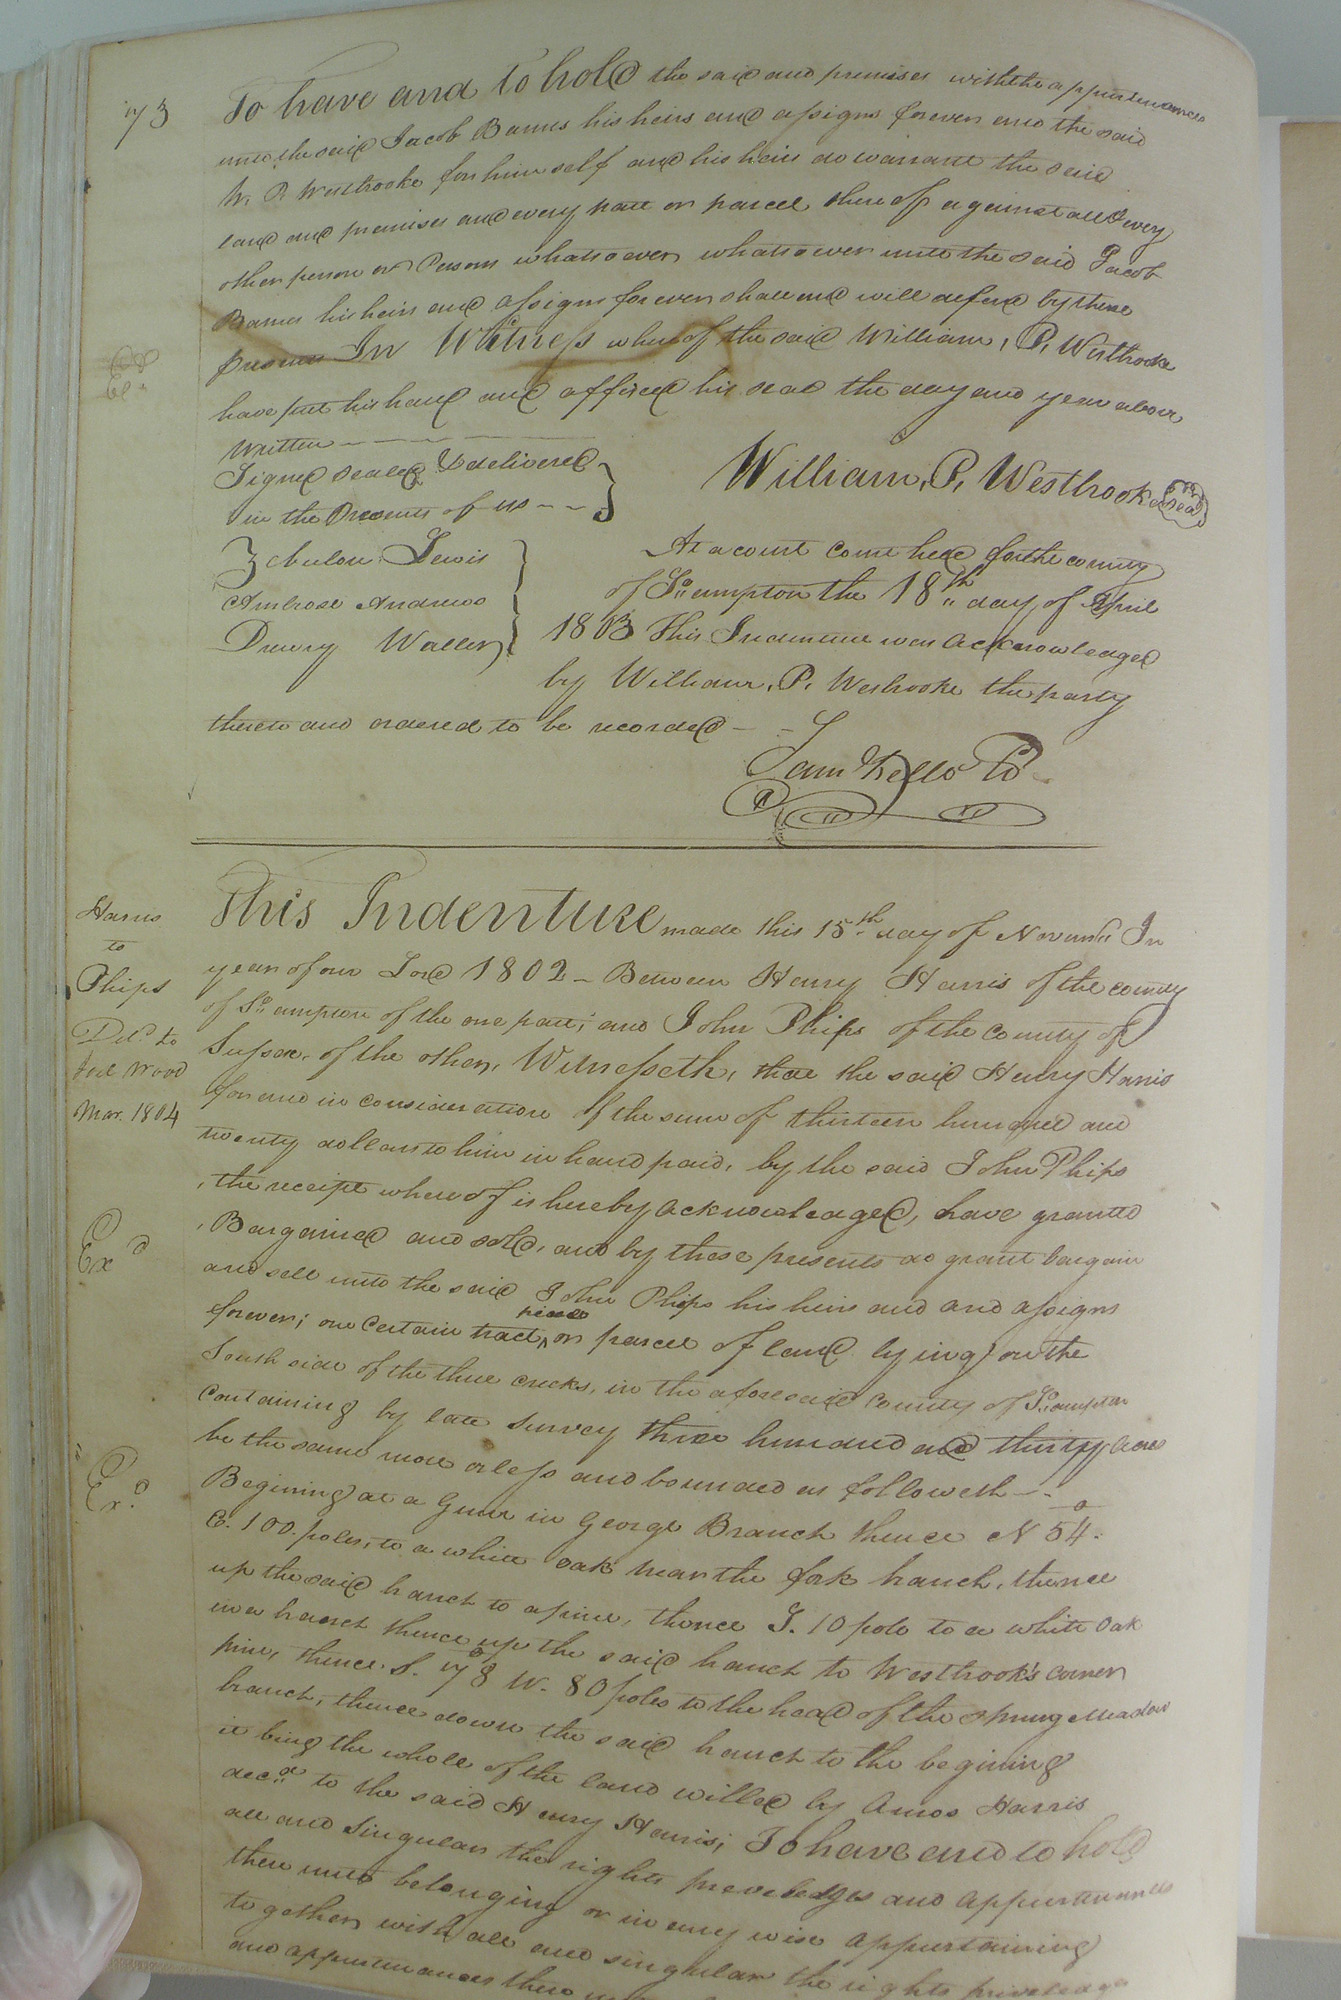 73
To have and to hold the said and premises with the appurtenances
unto the said Jacob Barnes his heirs and assigns forever and the said
W. P. Westbrooke for himself and his heirs do warrant the said
land and premises and every part or parcel thereof against all & every
other person or Persons whatsoever whatsoever unto the said Jacob
Barnes his heirs and assigns forever shall and will defend by these
presents In Witness whereof the said William, P, Westbrooke
have put his hand and affixed his seal the day and year above
Written
Signed sealed & delivered
in the Presents of us
William, P, Westbrooke
Seal
Zebulon Lewis
Ambrose Andrews
Drewry Waller
At a court come held for the county
of So. ampton the 18th day of April
1803 This Indenture was acknowledged
by William, P, Wesbrooke the party
thereto and ordered to be recorded
Sam Kello
Harris
to
Phips
Deld to
Joel Wood
Mar. 1804
Exd
Exd
This Indenture made this 15th day of Novemr. In
year of our Lord 1802 - Between Henry Harris of the county
of So. ampton of the one part; and John Phips of the county of
Sussex, of the other, Witnesseth, that the said Henry Harris
for and in consideration of the sum of thirteen hundred and
twenty dollars to him in hand paid, by the said John Phips
, the receipt whereof is hereby acknowledged, have granted
, Bargained and sold, and by these presents do grant bargain
and sell unto the said John Phips his heirs and and assigns
forever; one certain tract, piece or parcel of land lying on the
South side of the three creeks, in the aforesaid county of So. ampton
Containing by late survey three hundred and thirty acres
be the same more or less and bounded as followeth
Begining at a Gum in George Branch thence N 54°
E. 100. poles, to a white oak near the fork branch, thence
up the said branch to a pine, thence S. 10 pole to a white oak
in a branch thence up the said branch to Westbrook's corner
pine, thence S. 78° W. 80 poles to the head of the spring Meadow
branch, thence down the said branch to the begining
it being the whole of the land willed by Amos Harris
decd. to the said Henry Harris; To have and to hold
all and singular the rights preveledges and appurtenances
there unto belonging or in any wise appurtaining
together with all and singular the rights priveledges
and appurtenances there